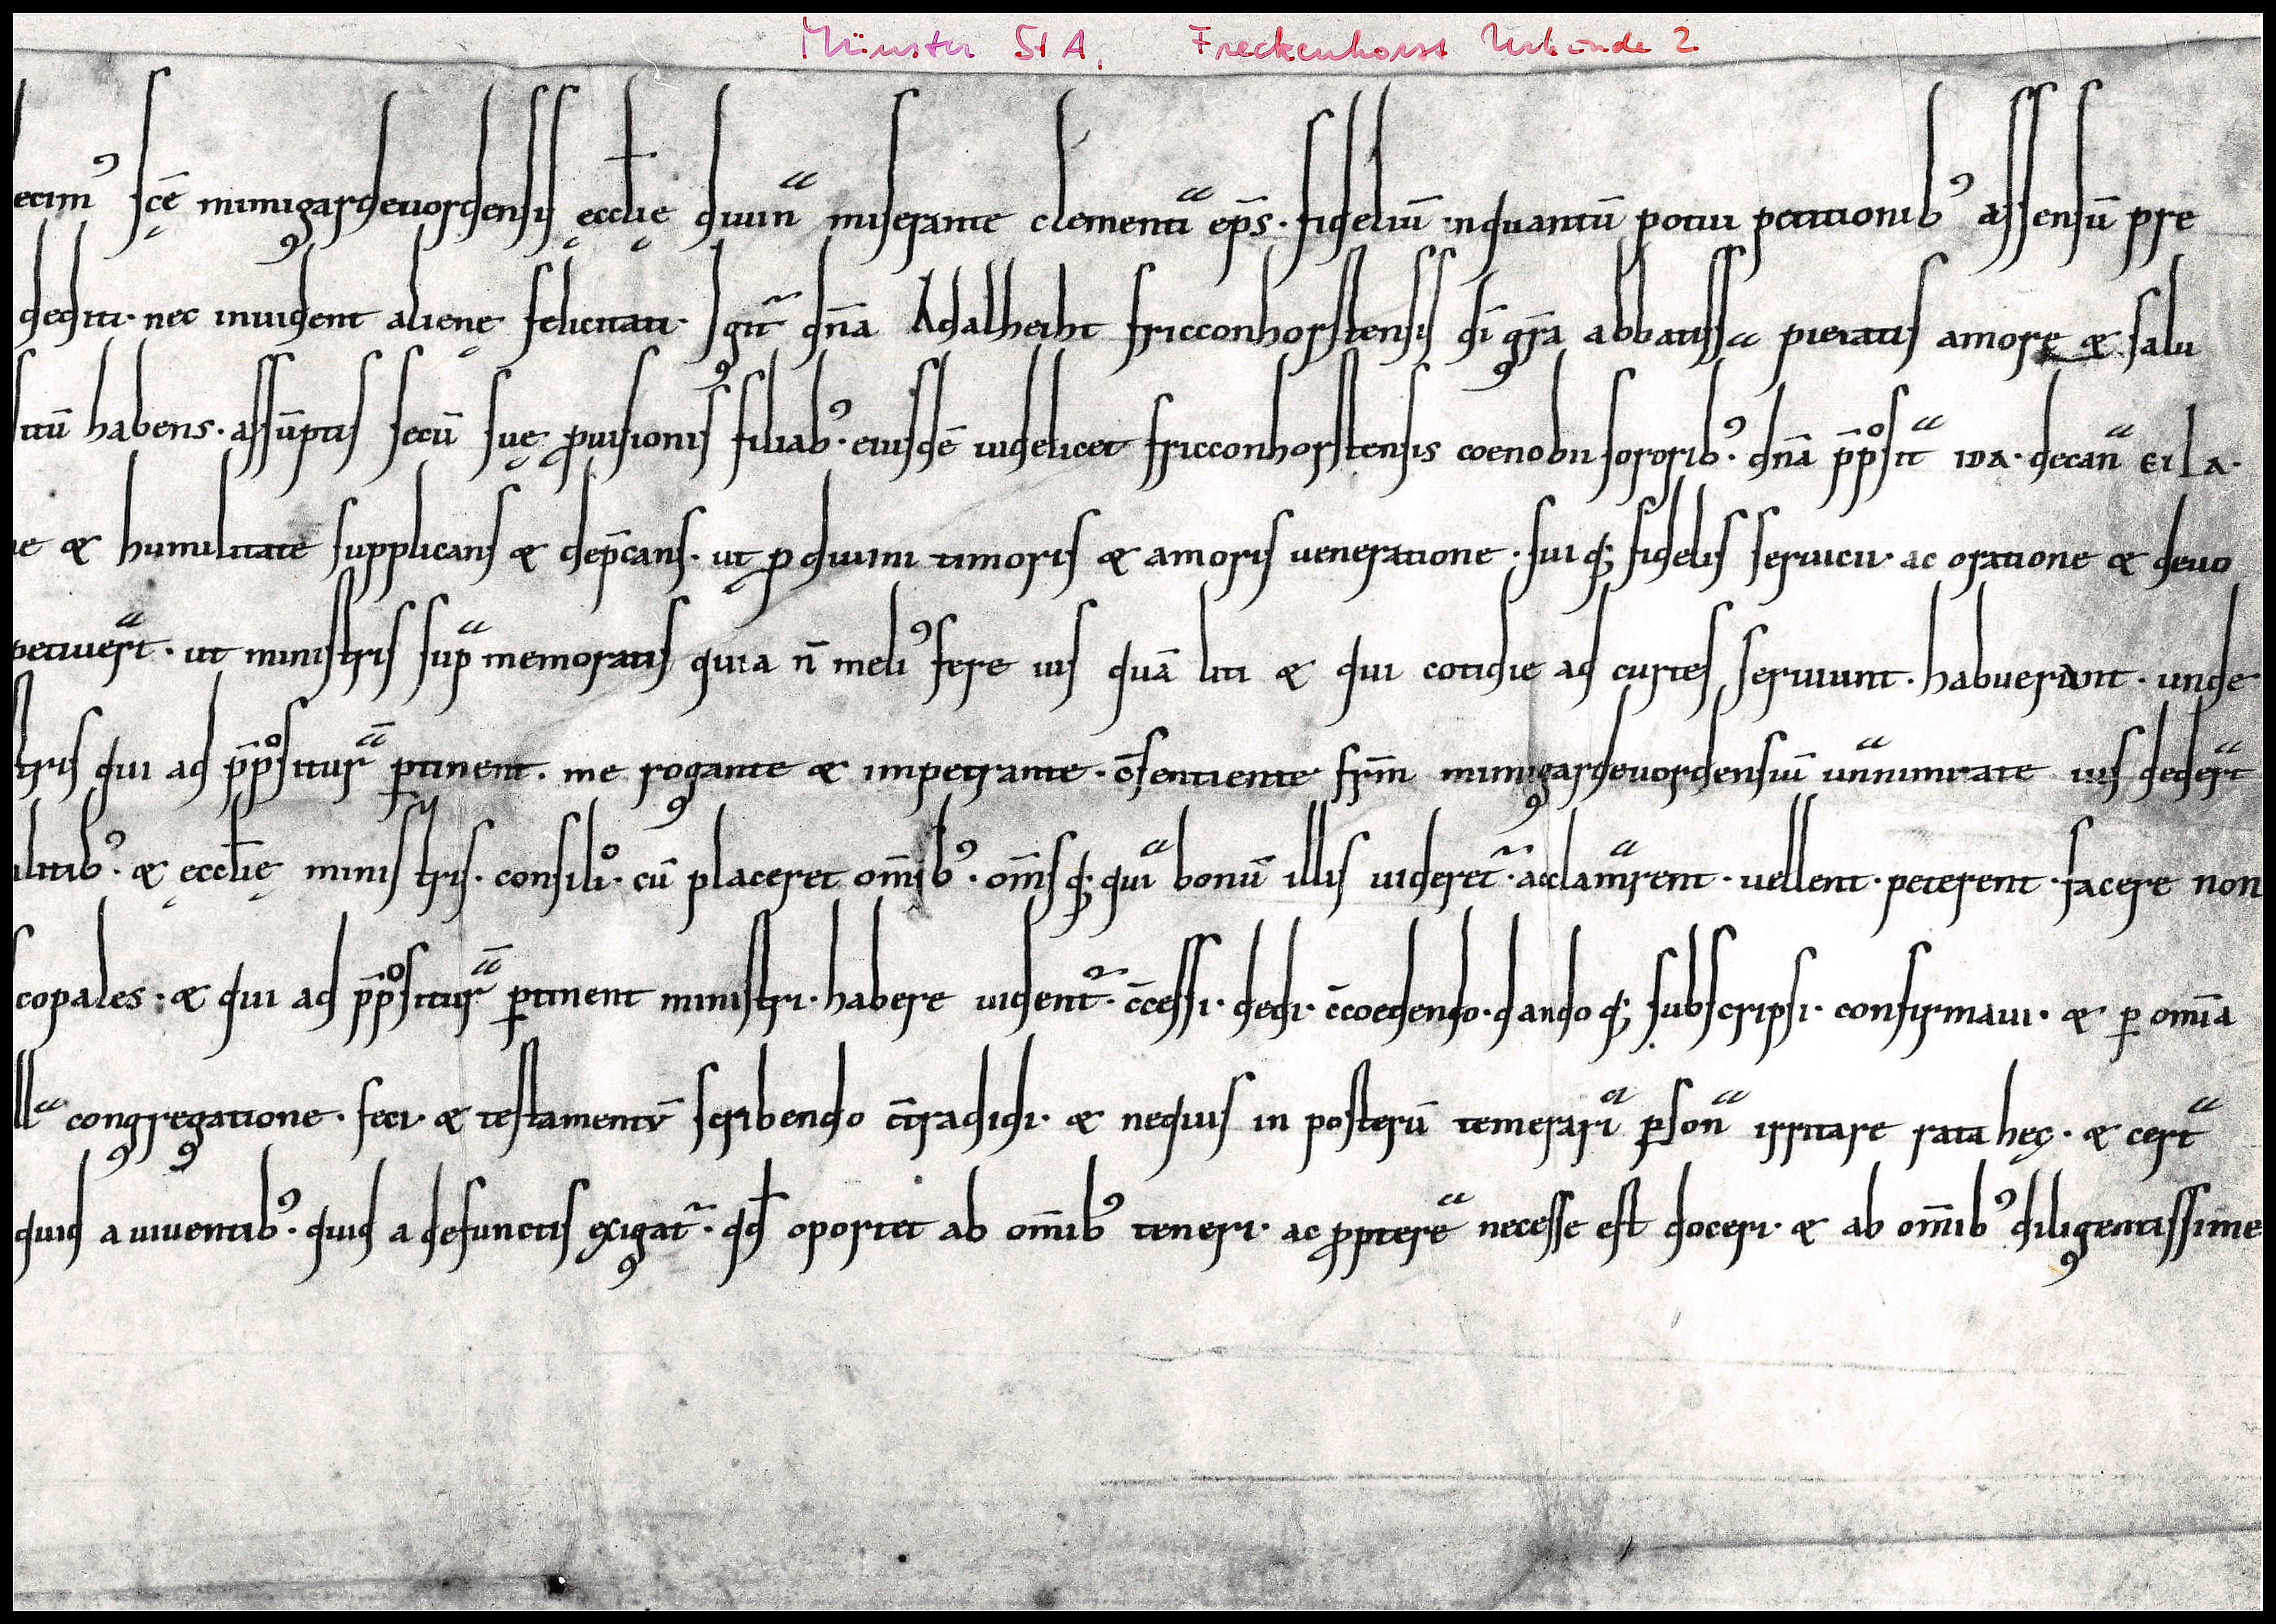 Münster StA. Freckenhorst Urkunde 2
ecimꝰ sc̄ę mimigardeuordensis ęcclię diuinᵃ miserante clementiᵃ ep̄s. fideliū inquantū potui petitionibꝰ assensū pre
dediti. nec inuident alienę felicitati. Igit᷑ dn̄a Adalheiht fricconhorstensis dī gr̄a abbatissᵃ pietatis amore & salu
itū habens. assūptis secū suę ꝓuisionis filiabꝰ. eiusdē uidelicet fricconhorstensis coenobii sororibꝰ. dn̄a p̄p̊sitᵃ IDA. decanᵃ EILA.
e & humilitate supplicans & dep̄cans. ut ꝓ diuini timoris & amoris ueneratione. sui q; fidelis seruicii. ac oratione & deuo
petiuerᵃt. ut ministris supᵃ memoratis quia n̄ meliꝰ fere ius quā liti & qui cotidie ad curtes seruiunt. habuerant. unde
tris qui ad p̄p̊siturᵃ̄ ꝑtinent. me rogante & impetrante. c̄sentiente frm̄ mimigardeuordensiū unᵃnimitate ius dederᵃt
litibꝰ. & ęcclię ministris. consiliͦ. cū placeret om̄ibꝰ. om̄s q; quiᵃ bonū illis uideret᷑. acclamᵃrent. uellent. peterent. facere non
copales. & qui ad p̄p̊siturᵃ̄ ꝑtinent ministri. habere uident᷑. c̄cessi. dedi. c̄coedendo. dando q; subscripsi. confirmaui. & ꝑ om̄ia
llᵃ congregatione. feci. & testamentū scribendo c̄tradidi. & nequis in posterū temerariᵃ ꝑsonᵃ irritare rata hęc. & certᵃ
quid a uiuentibꝰ. quid a defunctis exigat᷑. qđ oportet ab om̄ibꝰ teneri. ac ꝓptereᵃ necesse est doceri. & ab om̄ibꝰ diligentissime